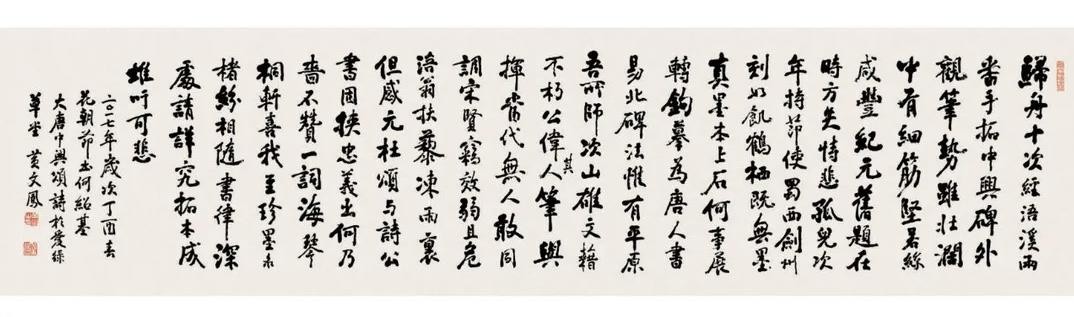 歸舟十次經浯溪兩
番手拓中興碑外
觀筆勢雖壯闊
中有細筋堅若絲
咸豐紀元舊題在
時方失恃悲孤兒次
年持節使蜀西劍州
刻如飢鶴栖既無墨
真墨本上石何事展
轉鉤摹為唐人書
易北碑法惟有平原
吾所師次山雄文藉
不朽公偉人其筆與
揮當代無人敢同
調宋賢竊效弱且危
涪翁扶藜凍雨裏
但感元杜頌與詩公
書固挾忠義出何乃
嗇不贊一詞海琴
桐軒喜我至珍墨
楮紛相隨書律深
處請詳究拓本成
堆吁可悲
二〇一七年歲次丁酉春
花朝節書何紹基
大唐中興頌詩於愛綠
草堂 黃文鳳